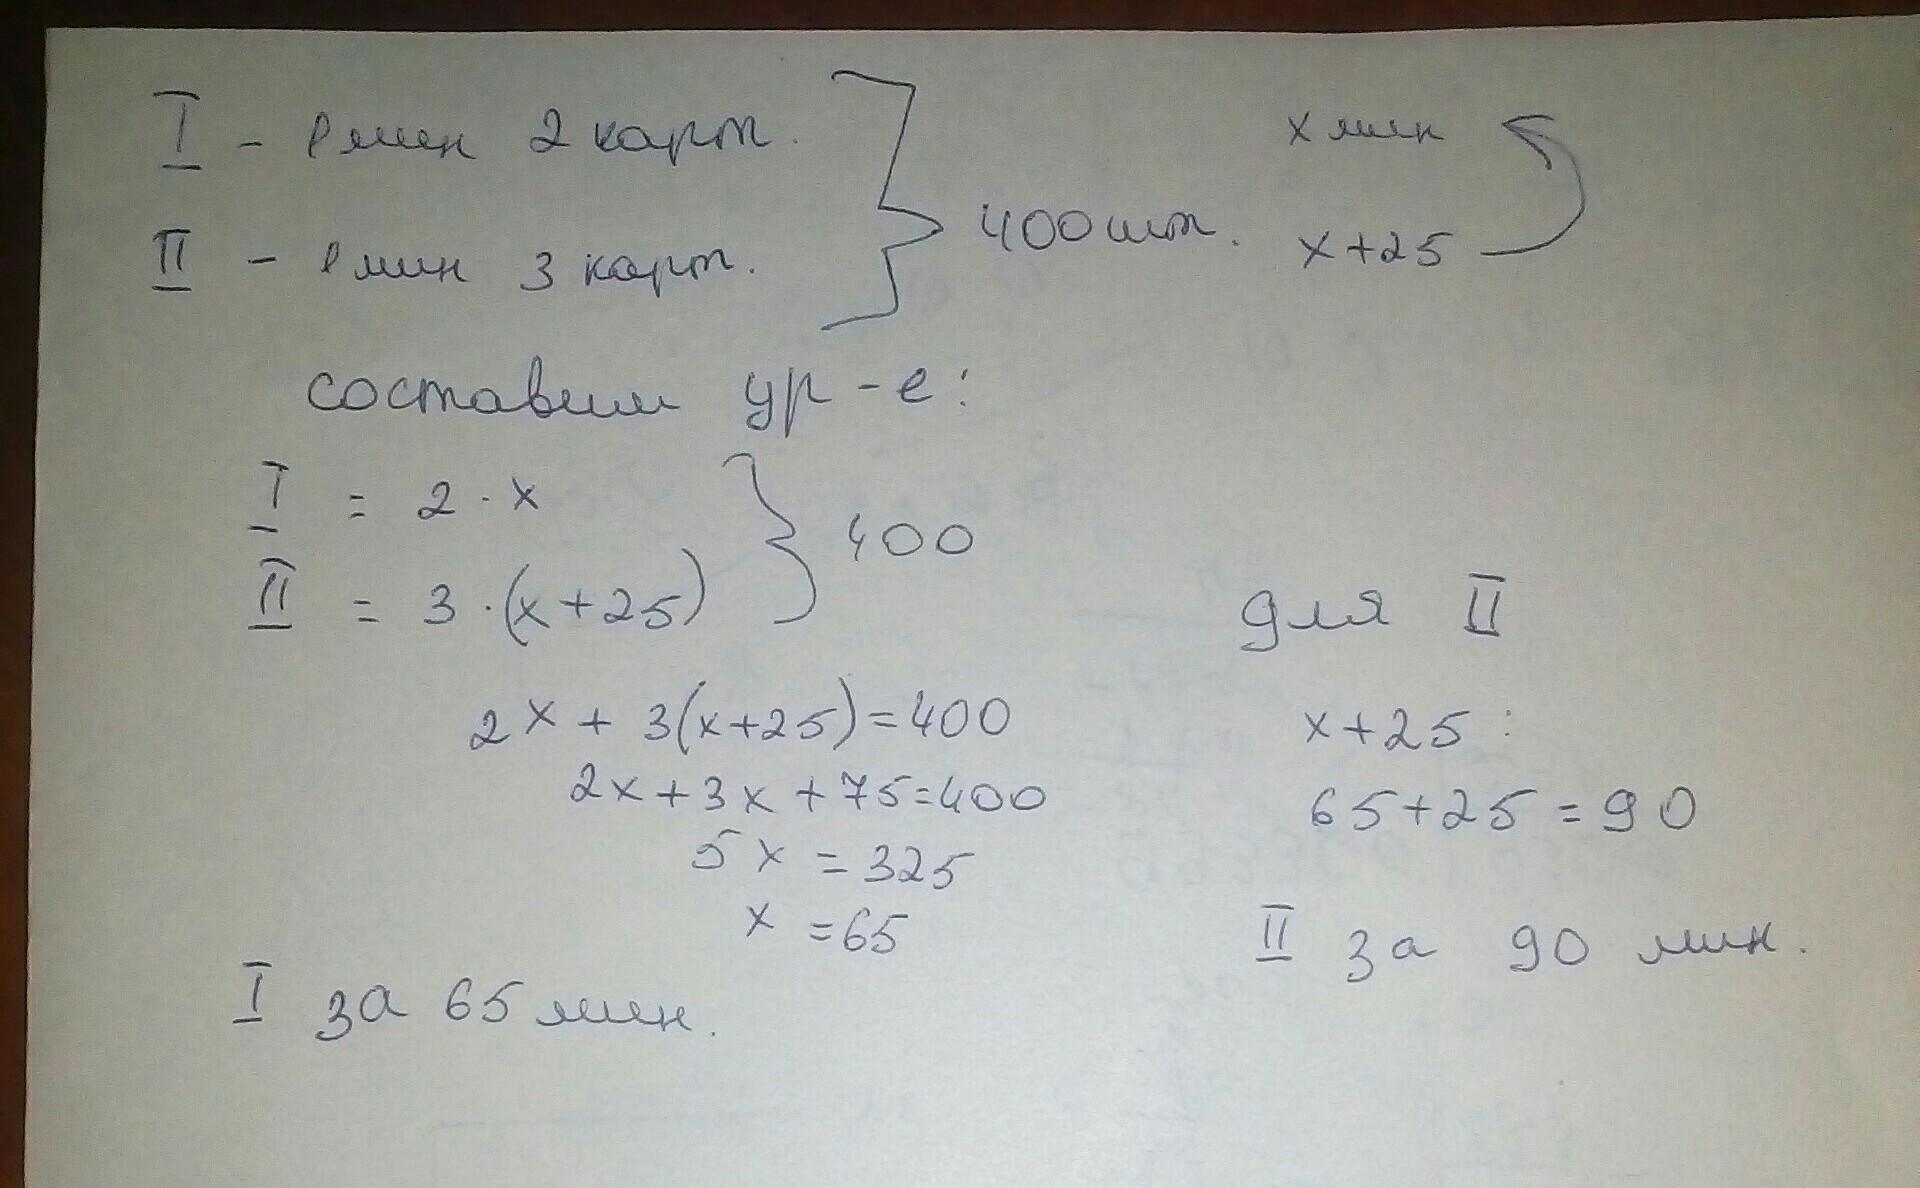 I - 1 мин 2 карт.
II - 1 мин 3 карт.
400 шт.
х мин
х+25
составим ур-е:
I = 2 · х
II = 3 · (х+25)
400
2х + 3(х+25)=400
2х+3х+75=400
5х = 325
х =65
I за 65 мин.
для II
х+25:
65+25=90
II за 90 мин.